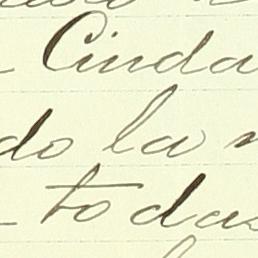 Ciuda
do la
todas